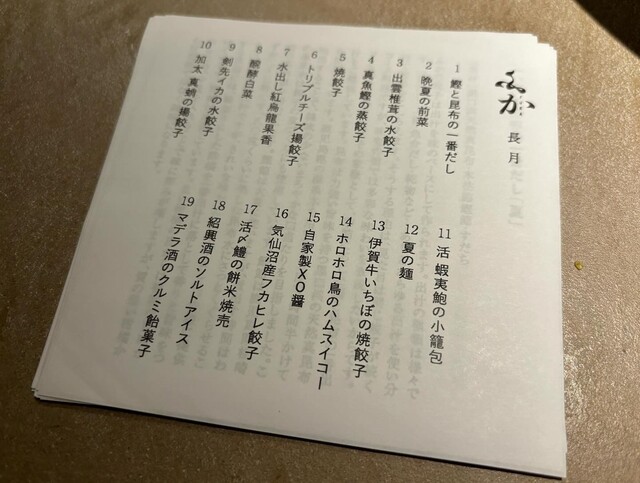 ふか
長月
1 鰹と昆布の一番だし
2 晩夏の前菜
3 出雲椎茸の水餃子
4 真魚鰹の蒸餃子
5 焼餃子
6 トリプルチーズ揚餃子
7 水出し紅烏龍果香
8 醗酵白菜
9 剣先イカの水餃子
10 加太真蛸の揚餃子
11 活 蝦夷鮑の小籠包
12 夏の麺
13 伊賀牛いちぼの焼餃子
14 ホロホロ鳥のハムスイコー
15 自家製XO醤
16 気仙沼産フカヒレ餃子
17 活〆鱧の餅米焼売
18 紹興酒のソルトアイス
19 マデラ酒のクルミ飴菓子